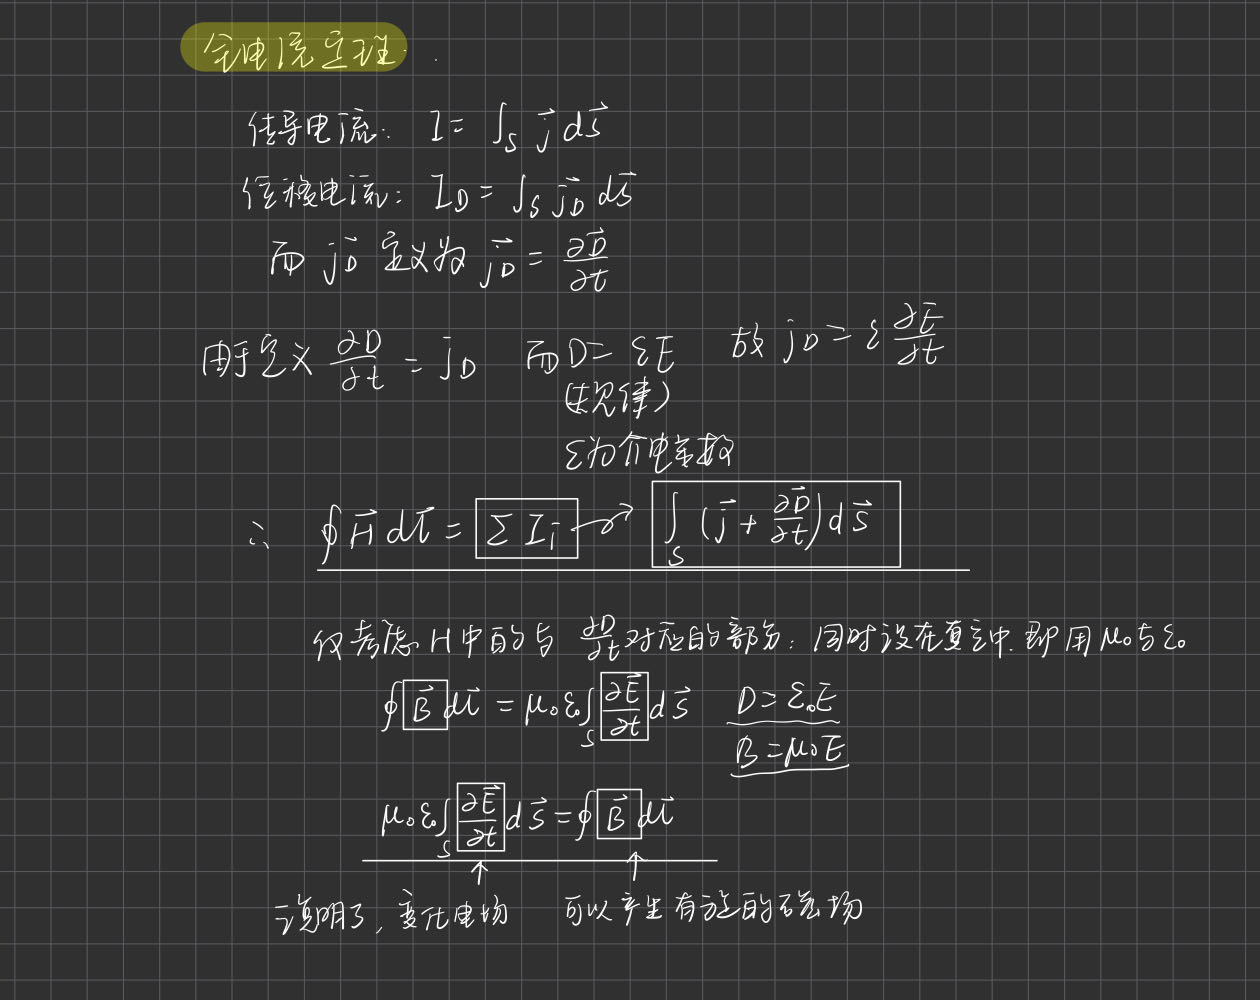 全电流定理.
传导电流: I = ∫_S j⃗ dS⃗
位移电流: I_D = ∫_S j⃗_D dS⃗
而 j⃗_D 定义为 j⃗_D = ∂D⃗/∂t
由于定义 ∂D/∂t = j_D 而 D = εE 故 j_D = ε ∂E⃗/∂t
(规律)
ε为介电常数
∴ ∮ H⃗ dl⃗ = ΣI_i → ∫_S (j⃗ + ∂D⃗/∂t) dS⃗
仅考虑 H 中的与 ∂D/∂t 对应的部分, 同时设在真空中. 即用 μ₀与ε₀
∮ B⃗ dl⃗ = μ₀ε₀ ∫_S ∂E⃗/∂t dS⃗ D = ε₀E
B = μ₀E
μ₀ε₀ ∫_S ∂E⃗/∂t dS⃗ = ∮ B⃗ dl⃗
说明了, 变化电场 可以产生有旋的磁场